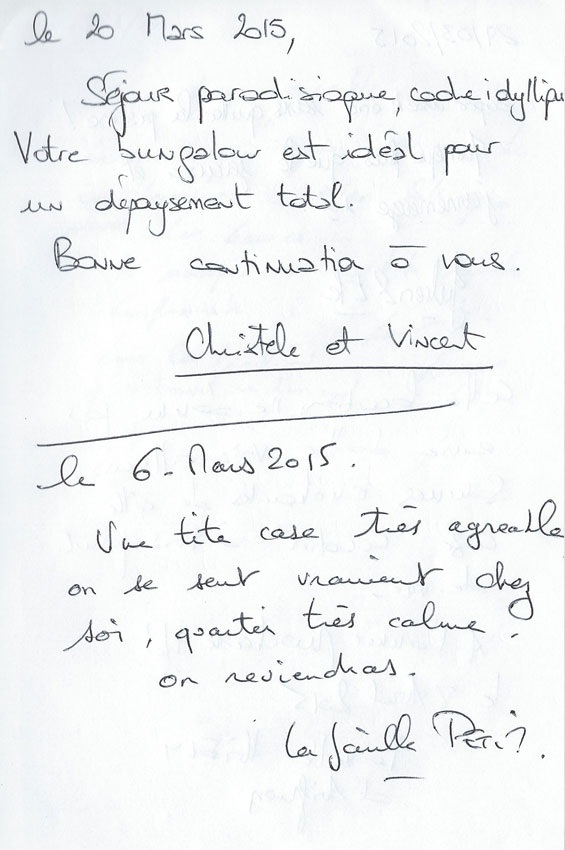 le 20 Mars 2015,
Séjour paradisiaque, cadre idyllique
Votre bungalow est idéal pour
un dépaysement total.
Bonne continuation à vous.
Christele et Vincent
le 6 - Mars 2015.
Une tite case très agreable
on se sent vraiment chez
soi, quartier très calme.
on reviendras.
La famille PETIT.